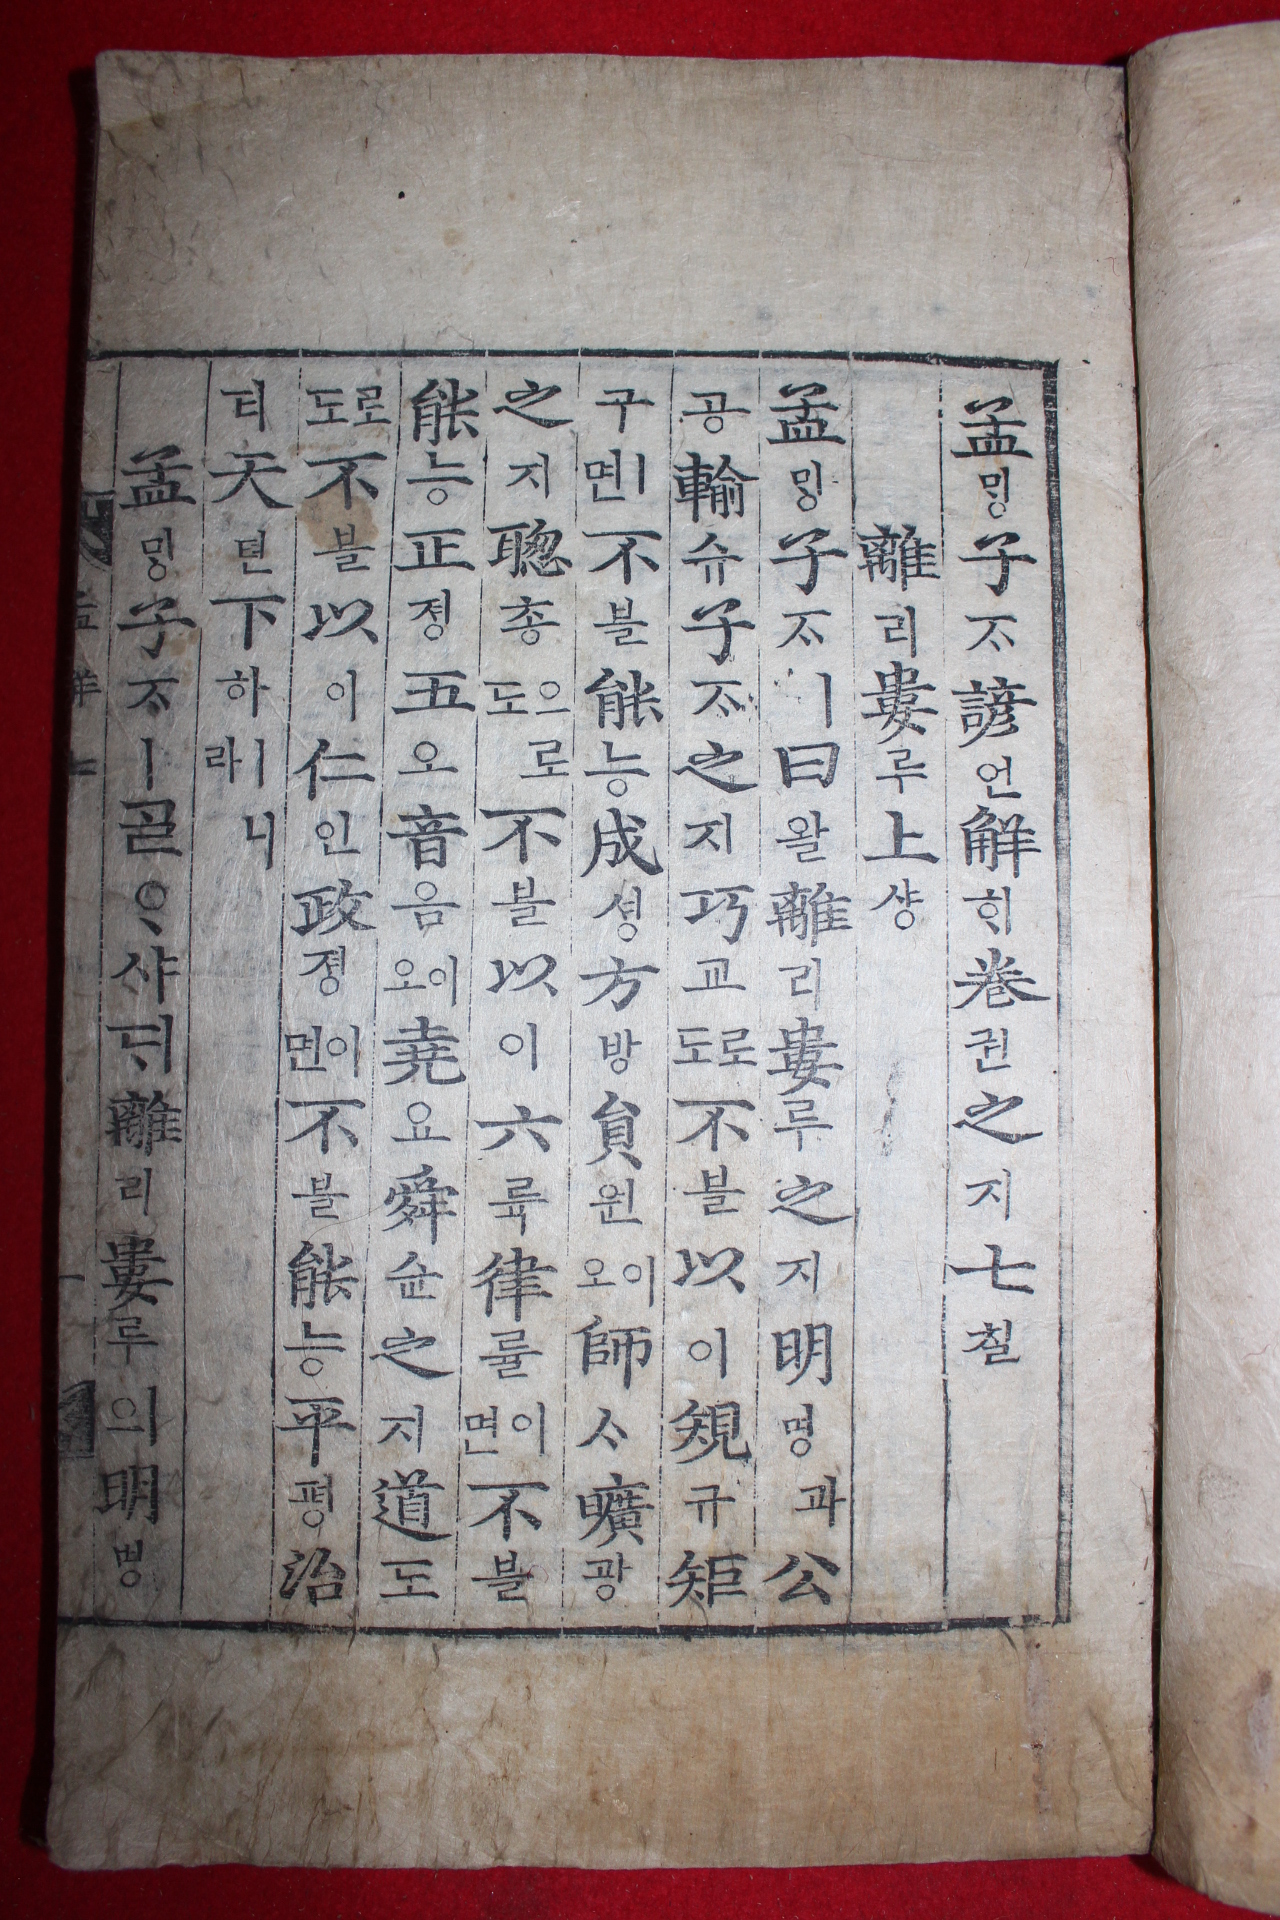 孟ᄆᆡᆼ子ᄌᆞ諺언解ᄒᆡ卷권之지七칠
離리婁루上샹
孟ᄆᆡᆼ子ᄌᆞㅣ曰왈離리婁루之지明명과公
공輸슈子ᄌᆞ之지巧교로도不블以이䂓규矩
구ㅣ면不블能능成셩方방負원이오師ᄉᆞ曠광
之지聦총으로도不블以이六륙律률이면不블
能능正졍五오音음이오堯요舜슌之지道도
로도不블以이仁인政졍이면不블能능平평治
티天텬下하ㅣ니라
孟ᄆᆡᆼ子ᄌᆞㅣᄀᆞᆯᄋᆞ샤ᄃᆡ離리婁루의明명